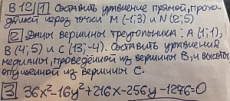 В 12 1 Составить уравнение прямой, прохо-
дящей через точки М (-1;3) и N (2;5)
2 Даны вершины треугольника: А (1;1),
В (4;5) и С (13;-4). Составить уравнения
медианы, проведенной из вершины В, и высоты
опущенной из вершины С.
3 36x²-16y²+216x-256y-1276=0